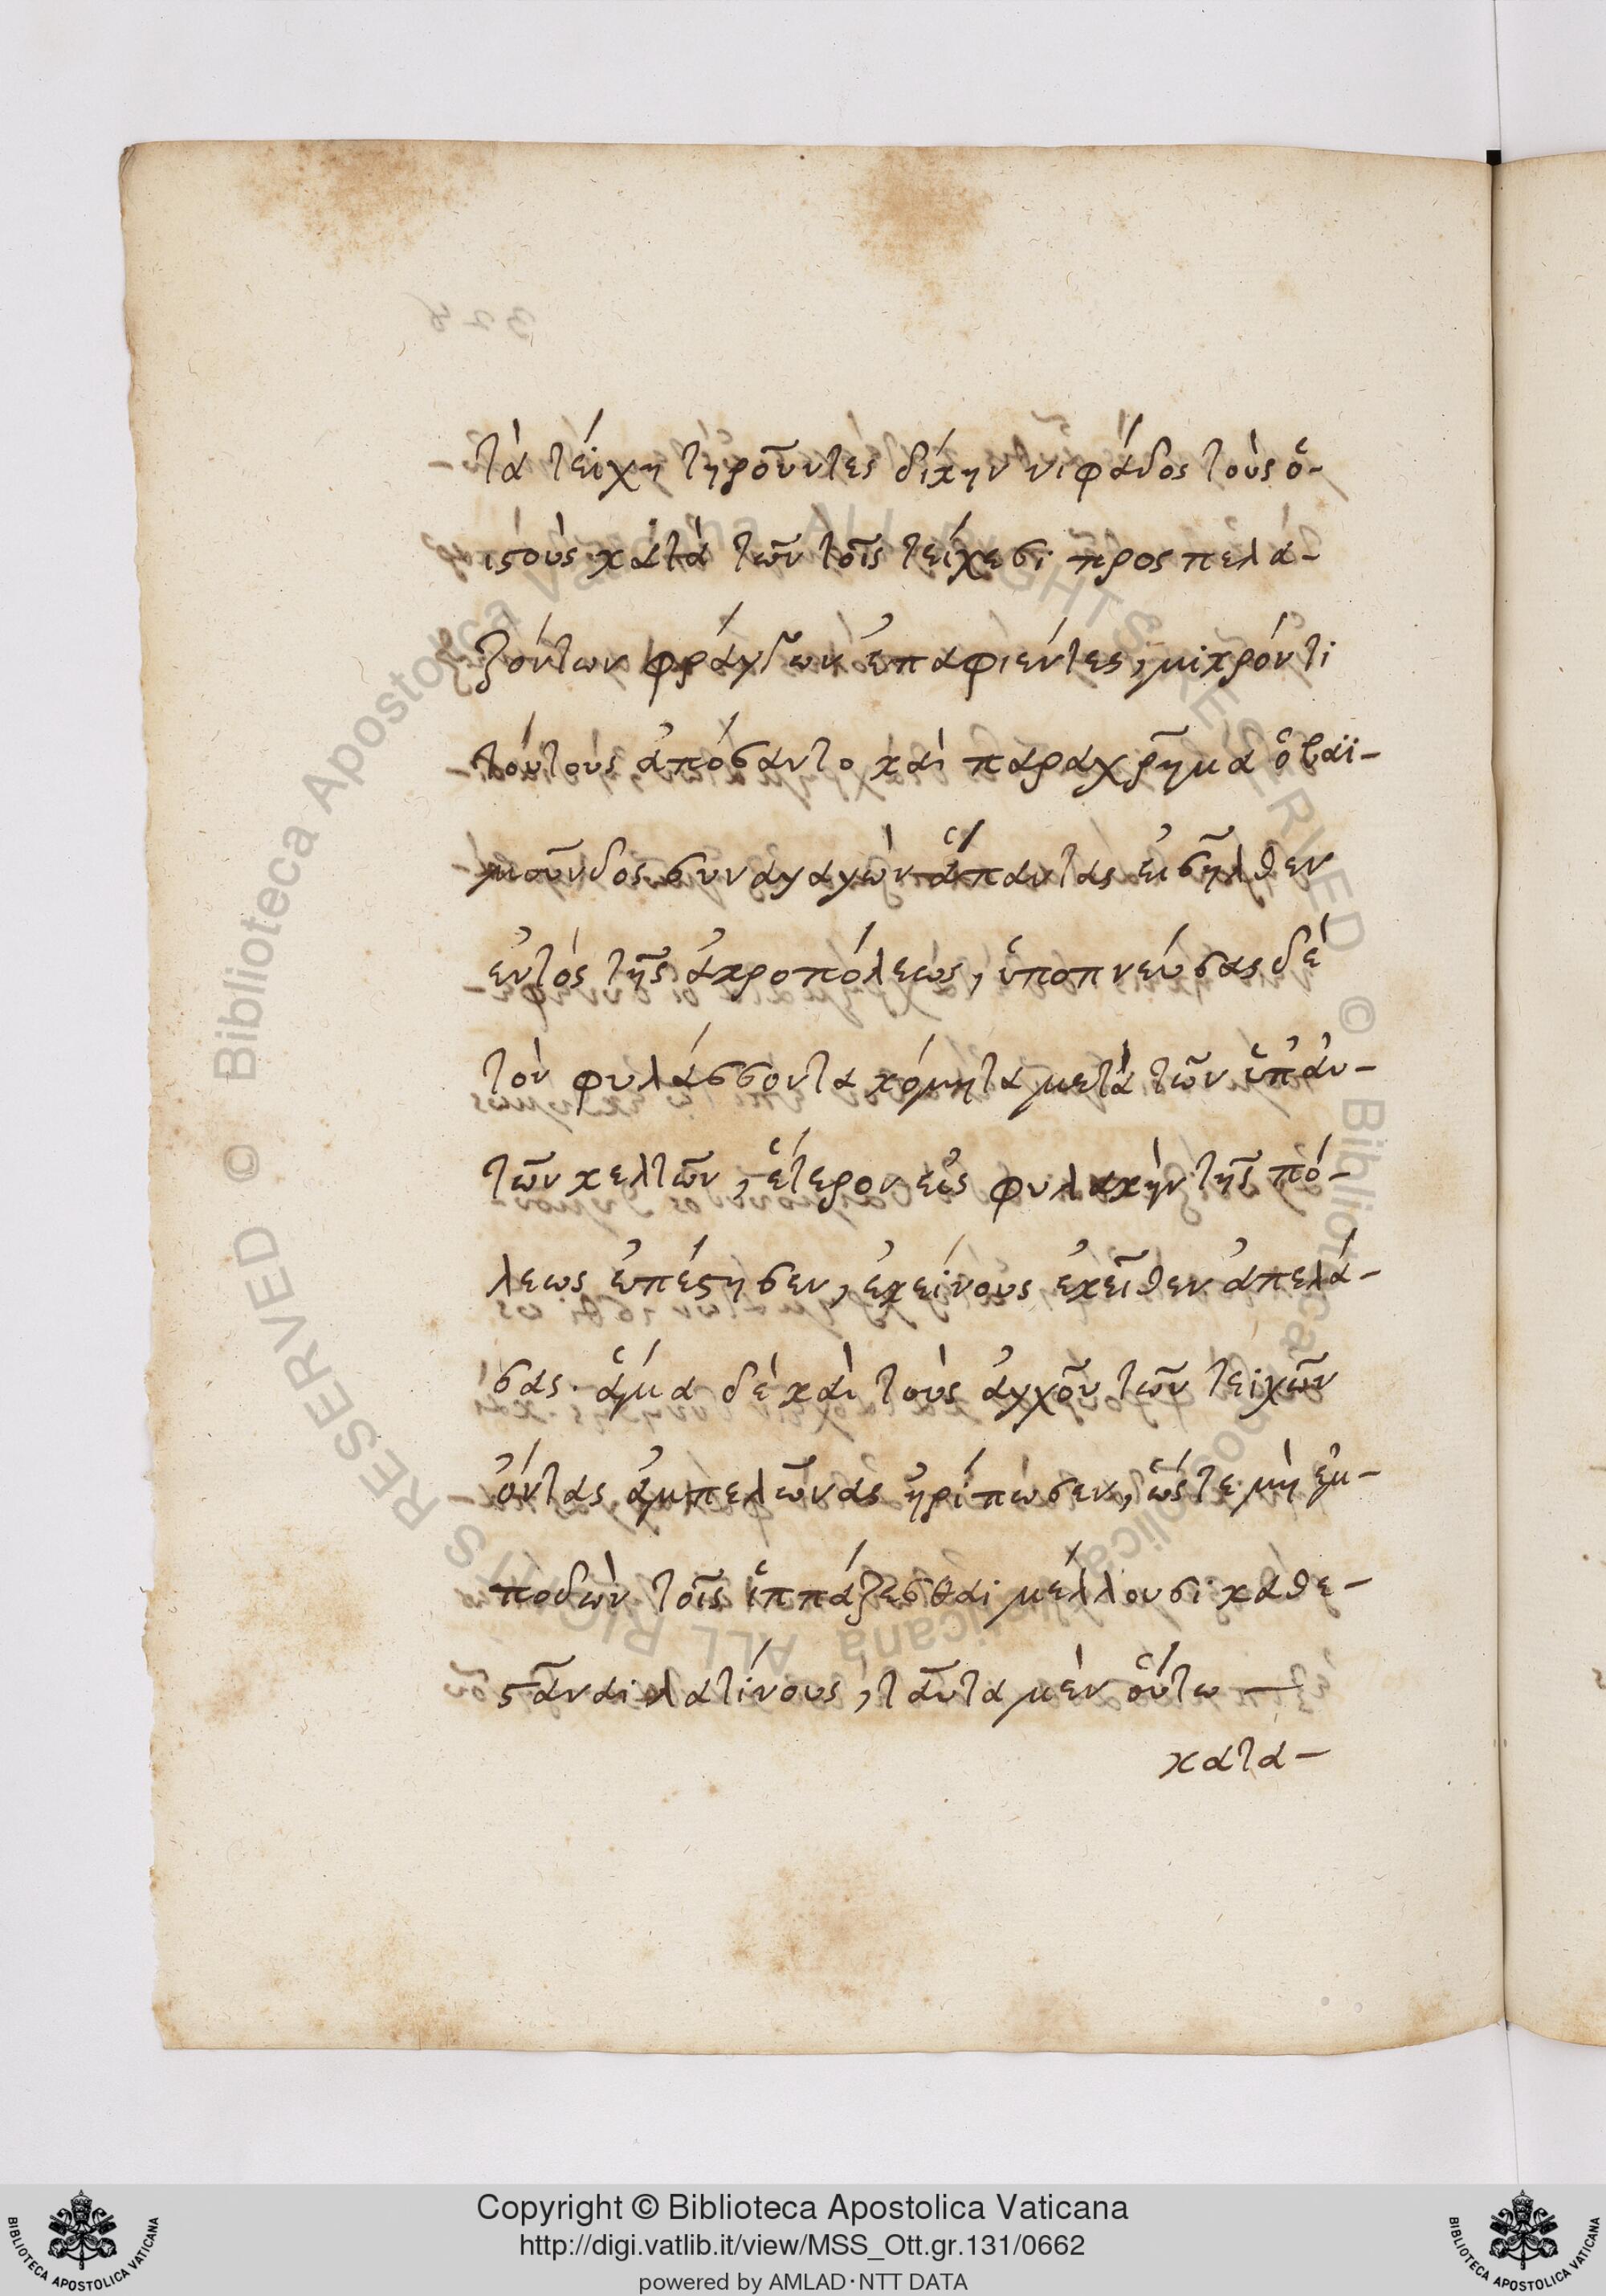 τὰ τείχη τηροῦντες δίκην νιφάδος τοὺς ὀ-
ϊστοὺς κατὰ τῶν τοῖς τείχεσι προσπελα-
ζόντων φράγδων ἐπαφιέντες, μικρόν τι
τούτους ἀπόσαντο καὶ παραχρῆμα ὁ βαϊ-
μοῦνδος συναγαγὼν ἅπαντας εἰσῆλθεν
ἐντός τῆς ἀκροπόλεως, ὑποπνεύσας δὲ
τὸν φυλάσσοντα κόμητα μετὰ τῶν ὑπ' αὐ-
τῶν κελτῶν, ἕτερον εἰς φυλακὴν τῆς πό-
λεως ἐπέστησεν, ἐκείνους ἐκεῖθεν ἀπελά-
σας· ἅμα δὲ καὶ τοὺς ἀγχοῦ τῶν τειχῶν
ὄντας ἀμπελῶνας ἠρίπωσεν, ὥστε μὴ ἐμ-
ποδὼν τοῖς ἱππάζεσθαι μέλλουσι καθε-
στᾶναι λατίνους, ταῦτα μὲν οὕτω —
κατα-
Copyright © Biblioteca Apostolica Vaticana
http://digi.vatlib.it/view/MSS_Ott.gr.131/0662
powered by AMLAD·NTT DATA
BIBLIOTECA APOSTOLICA VATICANA
BIBLIOTECA APOSTOLICA VATICANA
© Biblioteca Apostolica Vaticana ALL RIGHTS RESERVED
© Biblioteca Apostolica Vaticana ALL RIGHTS RESERVED